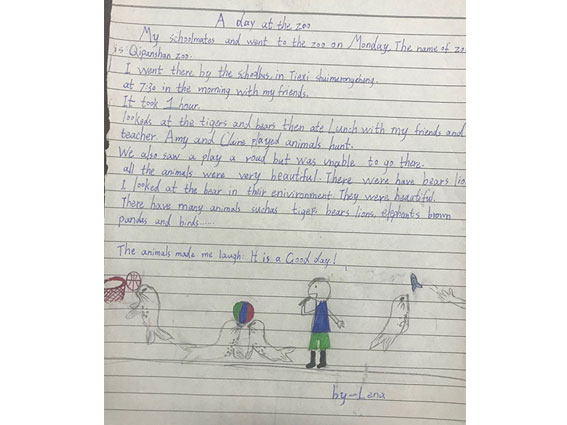 A day at the zoo
My schoolmates and went to the zoo on Monday. The name of zo
is Qipanshan zoo.
I went there by the schoolbus, in Tiexi
at 7:30 in the morning with my friends.
It took 1 hour.
lookeds at the tigers and bears then ate Lunch with my friends and
teacher. Amy and Claire played animals hunt.
We also saw a play a roud but was unable to go there.
all the animals were very beautiful. There were have bears lio
I looked at the bear in their enivironment. They were beautiful.
There have many animals suchas tigers bears lions, elephants brown
pandas and birds......
The animals made me laugh: It is a Good day!
by-Lena